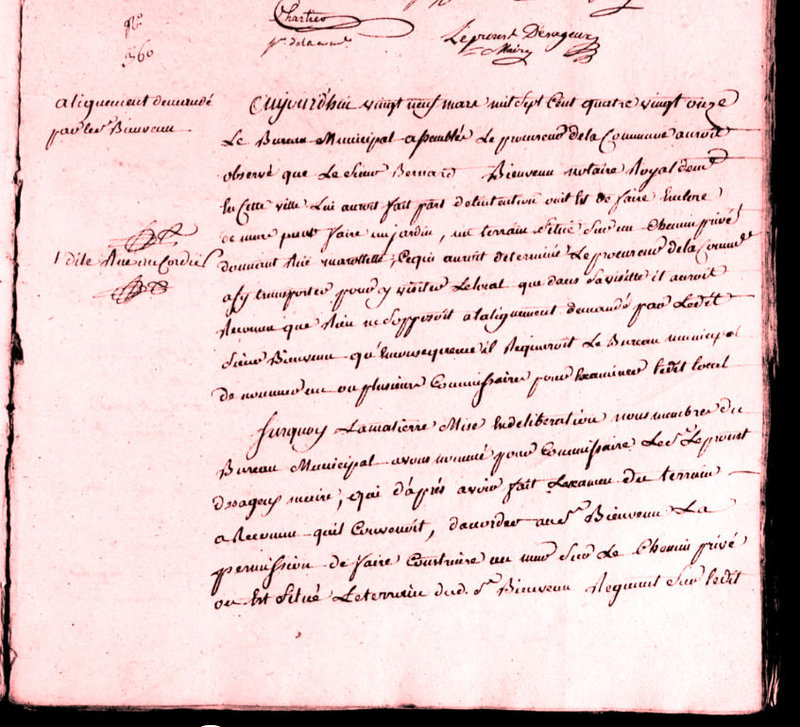 Chartier
Leprout Desageux
Maire
No.
360
aliquement demandé
par le sr. Bienvenu
Aujourdhui vingt neuf mars mil sept Cent quatre vingt onze
Le Bureau Municipal assemblée Le procureur dela Commune auroit
observé que Le sieur Bernard Bienvenu notaire Royal demt.
En Cette ville Lui auroit fait part delintention ou il Est de faire Enclore
de murs pour faire un jardin, un terrain Situé Sur un Chemin privé
1 dite Rue
donnant Rue marollette, Ce qui auroit determiné Le procureur dela Comne.
a sy transporter pour y visiter Le local que dans Sa visitte il auroit
Reconnu que Rien ne Sopposoit a lalignement demandé par Ledit
Sieur Bienvenu qu'En consequence il Requeroit Le Bureau municipal
de nommer un ou plusieurs Commissaires pour Examiner ledit local
Surquoy La matierre Mise En deliberation nous membres du
Bureau Municipal avons nommé pour Commissaire Le sr. Leproust
desageux maire, qui d'après avoir fait Lexamen du terrain
a Reconnu quil Convenoit, dacorder au sr. Bienvenu La
permission de faire Construire un mur Sur Le Chemin privé
ou Est Situé Le terrain dud. sr. Bienvenu Regnant Sur ledit